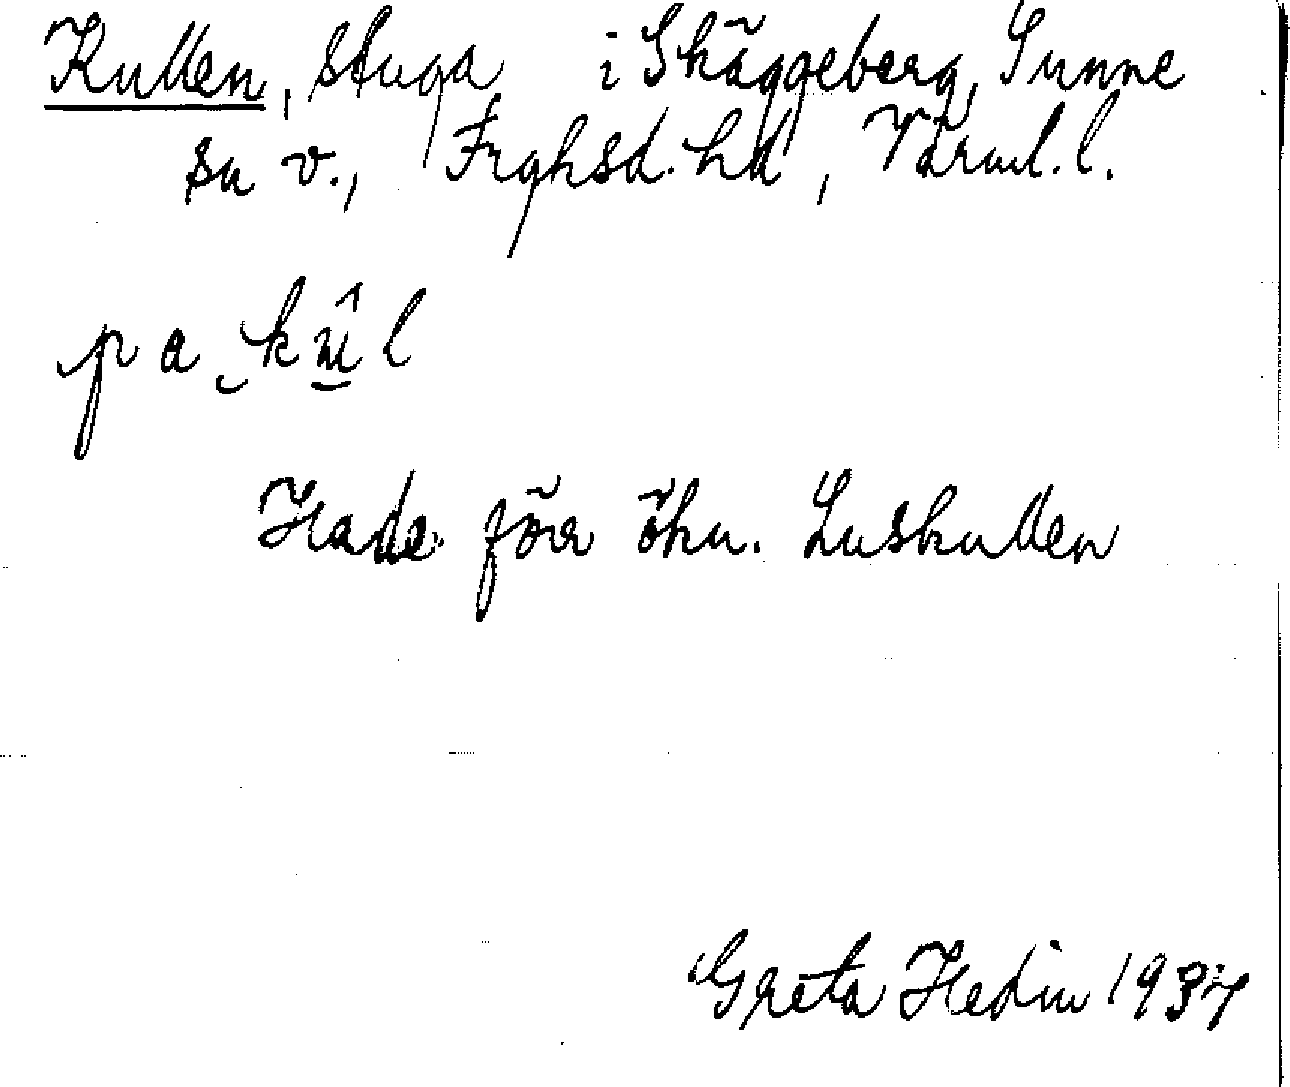 Kullen, stuga i Skäggeberg, Sunne
sn v., Frykhsd. hd, Värml. l.
pa kûl
Hade förr ökn. Luskullen
Greta Hedin 1937